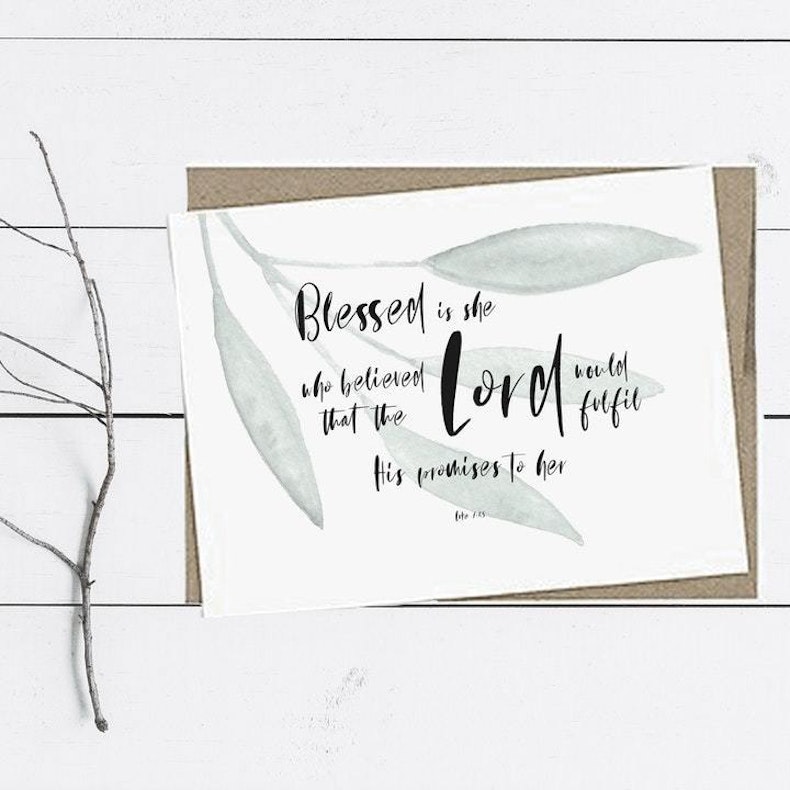 Blessed is she
who believed
that the Lord would
fulfil
His promises to her
Luke 1:45